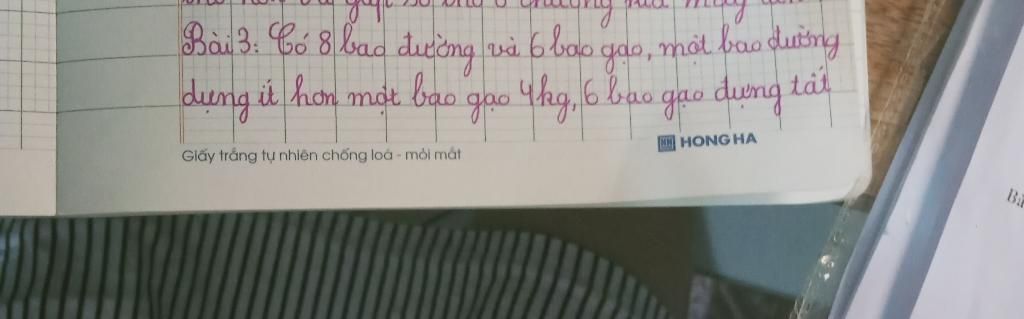 Bài 3: Có 8 bao đường và 6 bao gạo, một bao đường
đựng ít hơn một bao gạo 4kg, 6 bao gạo đựng tất
Giấy trắng tự nhiên chống loá - mỏi mắt
HH HONG HA